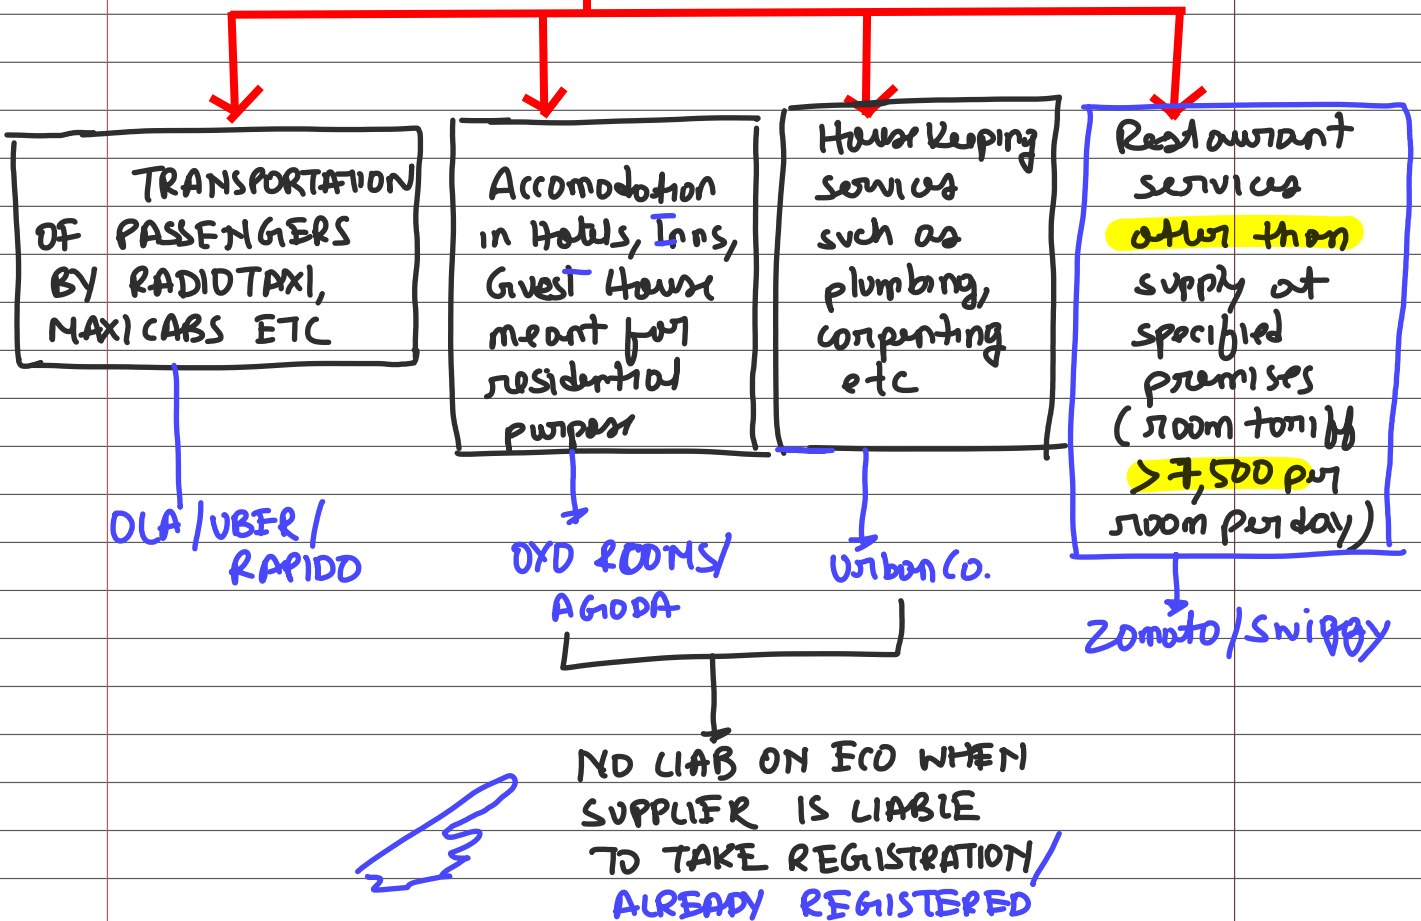 TRANSPORTATION
OF PASSENGERS
BY RADIOTAXI,
MAXI CABS ETC
Accomodation
in Hotels, Inns,
Guest House
meant for
residential
purpose
House Keeping
services
such as
plumbing,
carpenting
etc
Restaurant
services
other than
supply at
specified
premises
(room tariff
>7,500 per
room per day)
OLA/UBER/
RAPIDO
OYO ROOMS/
AGODA
Urban Co.
Zomato/Swiggy
NO LIAB ON ECO WHEN
SUPPLIER IS LIABLE
TO TAKE REGISTRATION/
ALREADY REGISTERED